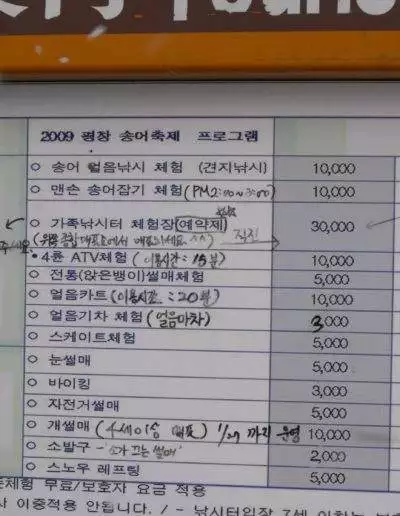 2009 평창 송어축제 프로그램
○ 송어 얼음낚시 체험 (견지낚시) 10,000
○ 맨손 송어잡기 체험 (PM2:00~3:00) 10,000
○ 가족낚시터 체험장(예약제) 30,000
직진
• 4륜 ATV체험 (이용시간: 15분) 10,000
○ 전통(앉은뱅이)썰매체험 5,000
○ 얼음카트 (이용시간 : 20분) 10,000
○ 얼음기차 체험 (얼음마차) 3,000
○ 스케이트체험 5,000
○ 눈썰매 5,000
○ 바이킹 3,000
○ 자전거썰매 5,000
○ 개썰매 (4세이상 ) 1/27 까지 운영 10,000
○ 소발구 - 소가 끄는 썰매 2,000
○ 스노우 레프팅 5,000
체험 무료/보호자 요금 적용
사 이중적용 안됩니다. / - 낚시터입장 7세 이하는